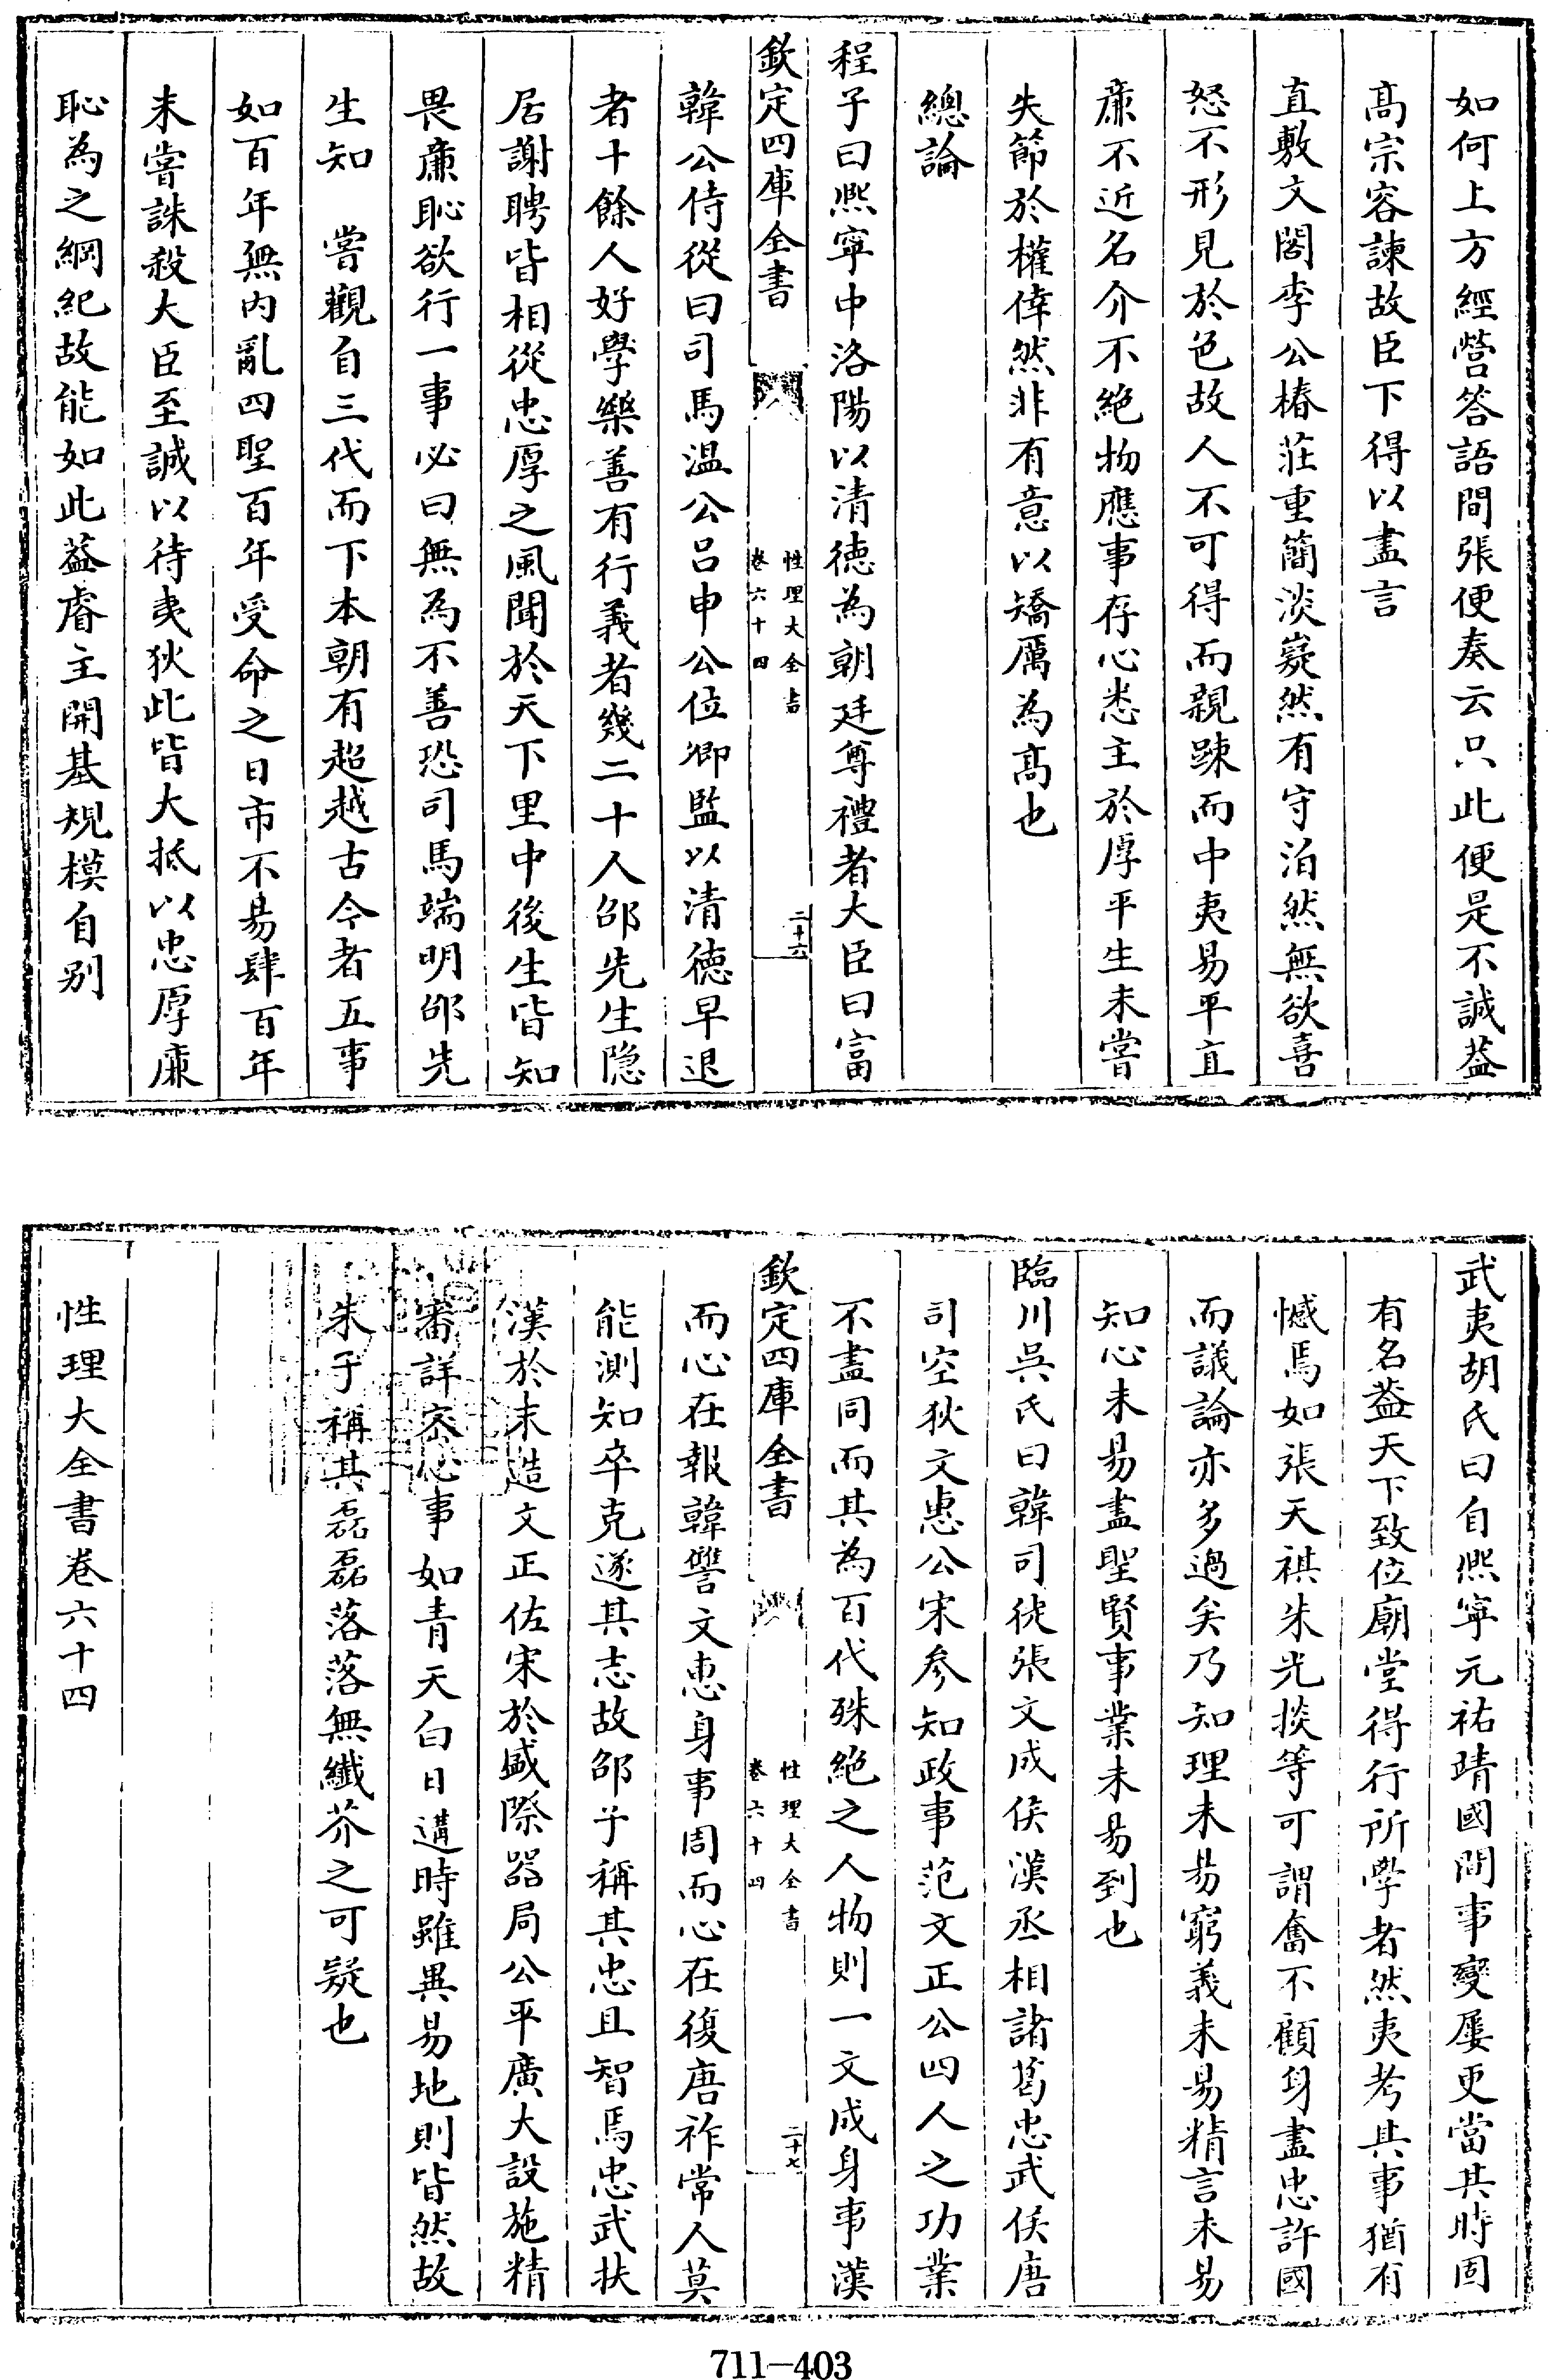 如何上方經營答語間張便奏云只此便是不誠葢
髙宗容諫故臣下得以盡言
直敷文閣李公椿莊重簡淡嶷然有守泊然無欲喜
怒不形見於色故人不可得而親踈而中夷易平直
亷不近名介不絶物應事存心悉主於厚平生未嘗
失節於權倖然非有意以矯厲為髙也
總論
程子曰熙寧中洛陽以清徳為朝廷尊禮者大臣曰富
欽定四庫全書
性理大全書
卷六十四
二十六
韓公侍從曰司馬温公吕申公位卿監以清徳早退
者十餘人好學樂善有行義者幾二十人邵先生隠
居謝聘皆相從忠厚之風聞於天下里中後生皆知
畏亷恥欲行一事必曰無為不善恐司馬端明邵先
生知 嘗觀自三代而下本朝有超越古今者五事
如百年無内亂四聖百年受命之日市不易肆百年
未嘗誅殺大臣至誠以待夷狄此皆大抵以忠厚亷
恥為之綱紀故能如此葢睿主開基規模自别
武夷胡氏曰自熙寧元祐靖國間事變屢更當其時固
有名葢天下致位廟堂得行所學者然夷考其事猶有
憾焉如張天祺朱光掞等可謂奮不顧身盡忠許國
而議論亦多過矣乃知理未易窮義未易精言未易
知心未易盡聖賢事業未易到也
臨川吳氏曰韓司徒張文成侯漢丞相諸葛忠武侯唐
司空狄文惠公宋參知政事范文正公四人之功業
不盡同而其為百代殊絶之人物則一文成身事漢
欽定四庫全書
性理大全書
卷六十四
二十七
而心在報韓讐文恵身事周而心在復唐祚常人莫
能測知卒克遂其志故邵子稱其忠且智焉忠武扶
漢於末造文正佐宋於盛際器局公平廣大設施精
審詳宻心事如青天白日遘時雖異易地則皆然故
朱子稱其磊磊落落無纎芥之可疑也
性理大全書卷六十四
711-403